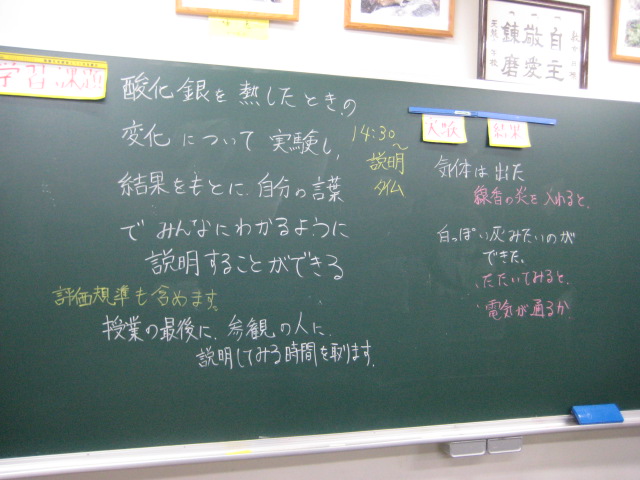 学習課題
酸化銀を熱したときの
変化について実験し、
結果をもとに、自分の言葉
でみんなにわかるように
説明することができる
評価規準も含めます。
授業の最後に、参観の人に、
説明してみる時間を取ります。
14:30
～
説明
タイム
実験
結果
気体は出た
線香の炎を入れると、
白っぽい灰みたいのが
できた。
、たたいてみると、
・電気が通るか
自主
敬愛
錬磨